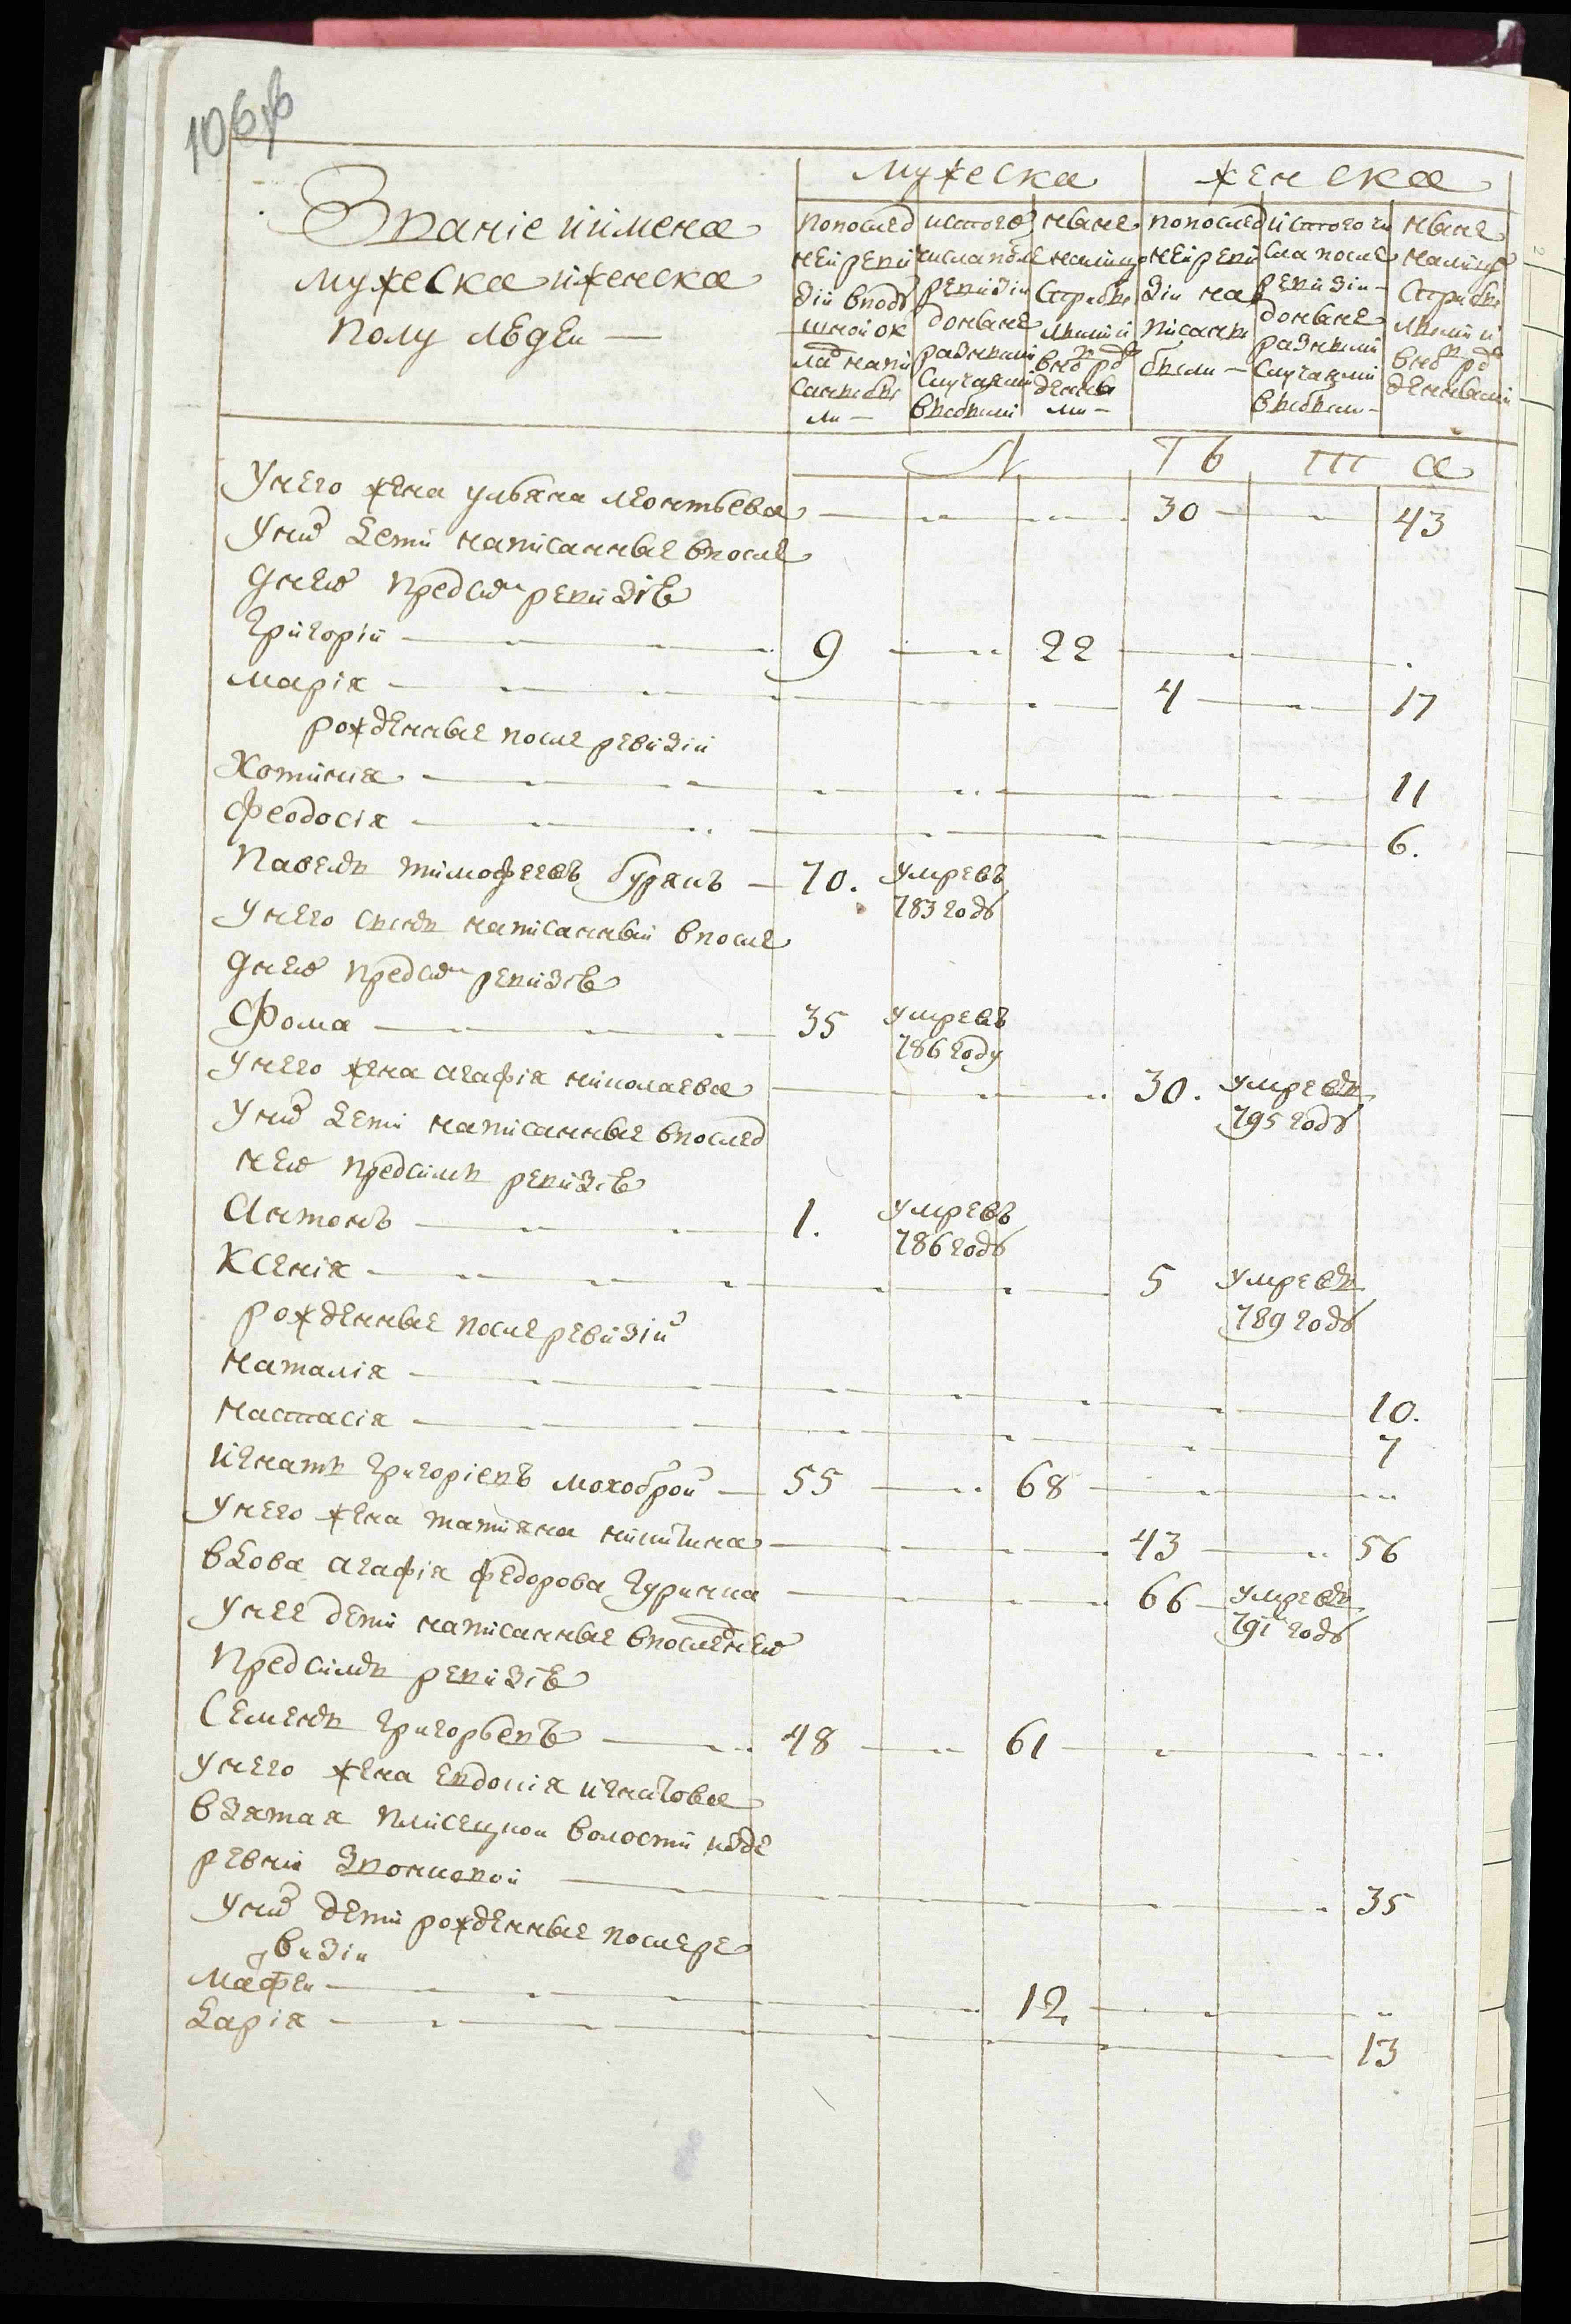 106об
Званіе иимена
мужеска иженска
полу людеи —
Мужеска
женска
попослед
ней реви
зіи вподу
шнои ок
лад напи
саныбы
ли —
истого
числа после
ревизіи
доныне
разными
случаями
выбыли
ныне
налицо
старыми
ивнов рож
денны
ми —
попослед
ней реви
зіи на
писаны
были —
истого чи
сла после
ревизіи —
доныне
разными
случаями
выбыли —
ныне
налицо
старыми
ивнов рож
денными
Л Т в т а
Унего жена ульяна леонтьева — 30 — 43
Уних дети написанные впосле
днеи пред сим ревизіе
Григорій — 9 — 22
Марія — 4 — 17
рожденные после ревизіи
Хотинія — 11
Феодосія — 6.
Павелъ тимофеевъ бурянъ — 70. умревъ
783 году
Унего сынъ написанныи впосле
днеи пред сим ревизіе
Фома — 35 умревъ
786 году
Унего жена агафія николаева — 30. умрева
795 году
Уних дети написанные впослед
неи предсимъ ревизіе
Антонъ — 1. умревъ
786 году
Ксенія — 5 умрева
789 году
рожденные после ревизіи
Наталія — 10.
Настасія — 7
Игнатъ григоріевъ мохоброи — 55 — 68
Унего жена татияна никитина — 43 — 56
вдова агафія федорова гуринна — 66 умрева
791 году
Унее дети написанные впоследнеи
предсимъ ревизіе
Семенъ григорьевъ — 48 — 61
Унего жена евдокія игнатова
взятая плисецкои волости издe
ревни звонковои — 35
Уних дети рожденные послере
визіи
Мафеи — 12
Дарія — 13